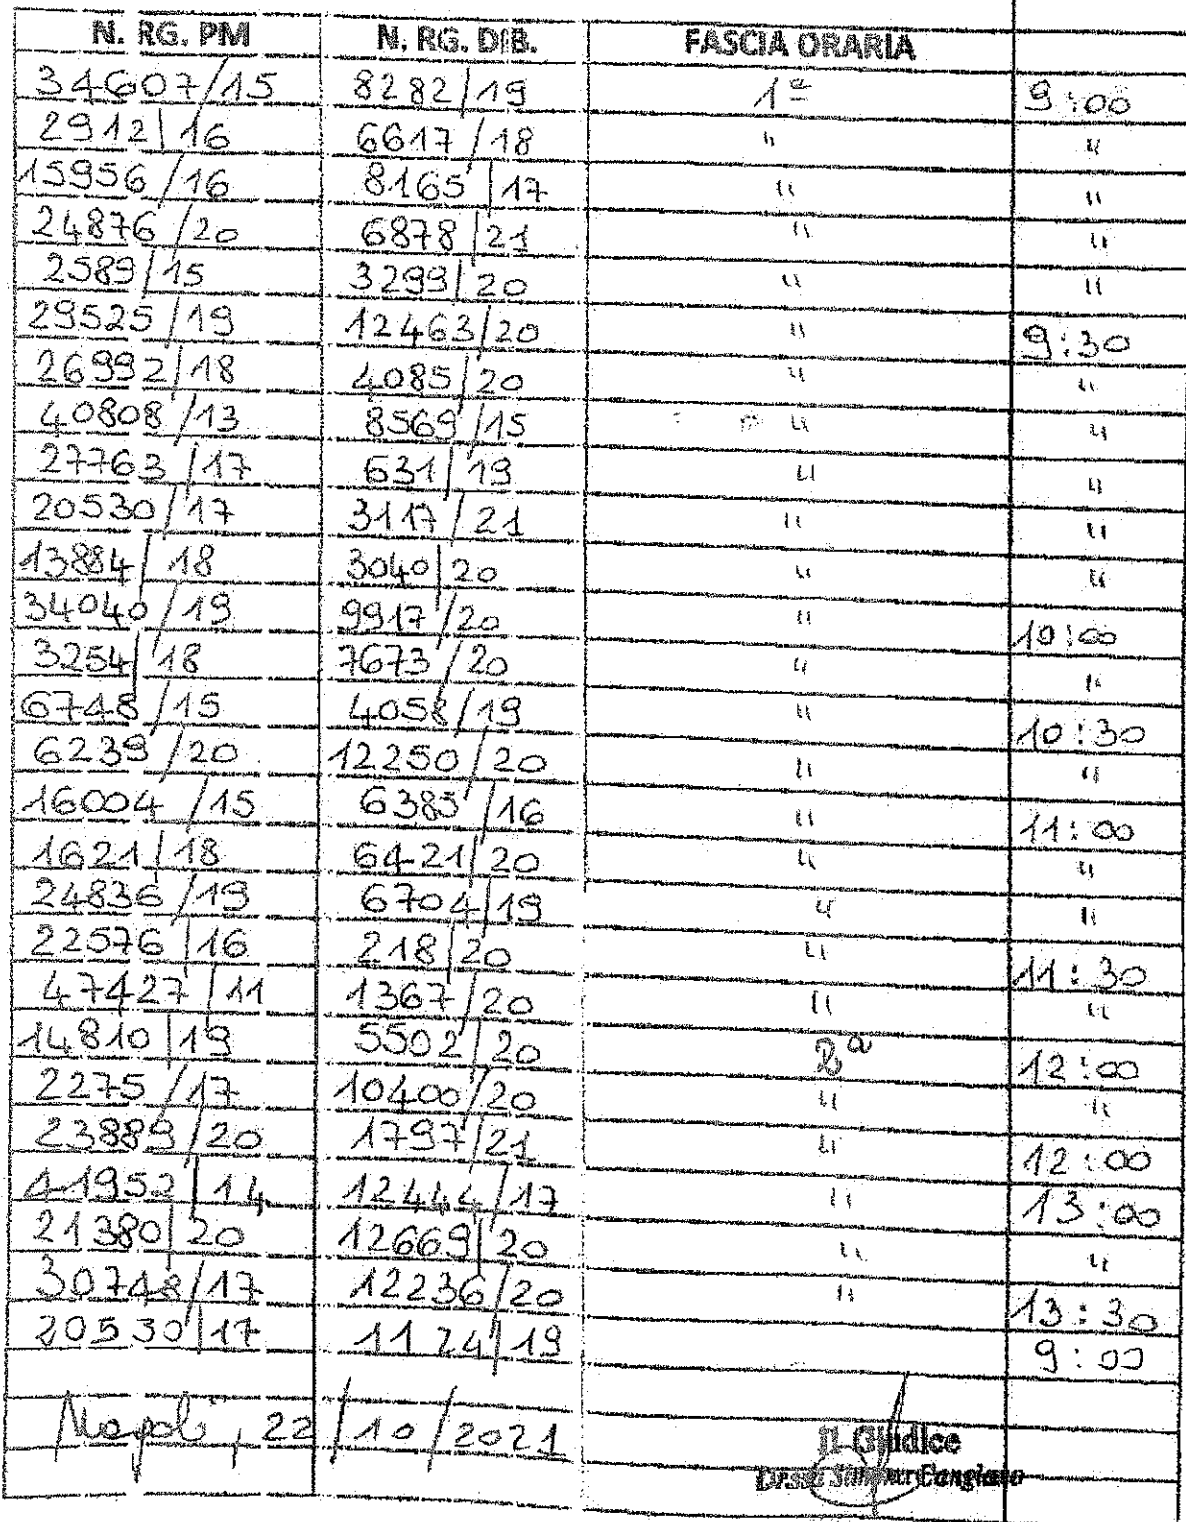 N. RG. PM N. RG. DIB. FASCIA ORARIA
34607/15 8282/19 1ª 9:00
2912/16 6617/18 " "
15956/16 8165/17 " "
24876/20 6878/21 " "
2589/15 3299/20 " "
29525/19 12463/20 " 9:30
26992/18 4085/20 " "
40808/13 8569/15 " "
27763/17 631/19 " "
20530/17 3117/21 " "
13884/18 3040/20 " "
34040/19 9917/20 " 10:00
3254/18 7673/20 " "
6748/15 4058/19 " 10:30
6239/20 12250/20 " "
16004/15 6385/16 " 11:00
1621/18 6421/20 " "
24836/19 6704/19 " "
22576/16 218/20 " 11:30
47427/11 1367/20 " "
14810/19 5502/20 2ª 12:00
2275/17 10400/20 " "
23889/20 1797/21 " 12:00
41952/14 12444/17 " 13:00
21380/20 12669/20 " "
30748/17 12236/20 " 13:30
20530/17 1124/19 9:00
Napoli, 22/10/2021
Il Giudice